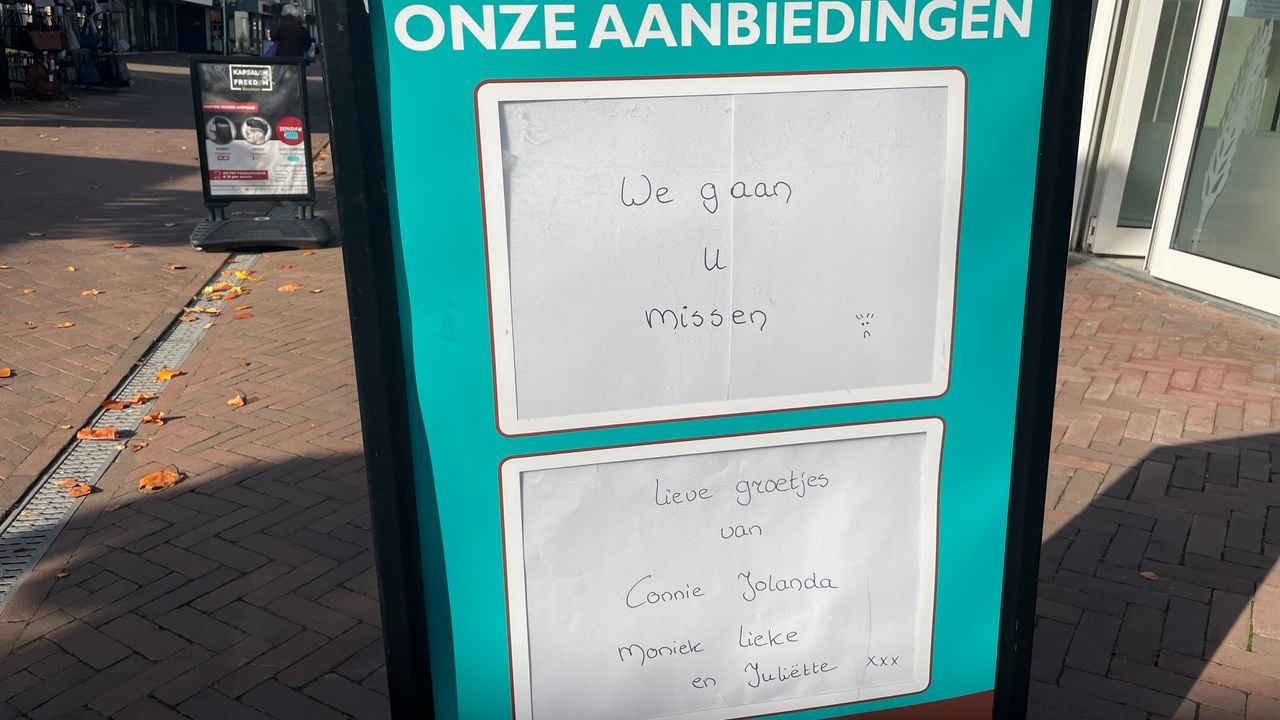 ONZE AANBIEDINGEN
We gaan
u
missen
lieve groetjes
van
Connie Jolanda
Moniek lieke
en Juliëtte xxx
KAPSALON
FREEDOM
ZONDAG